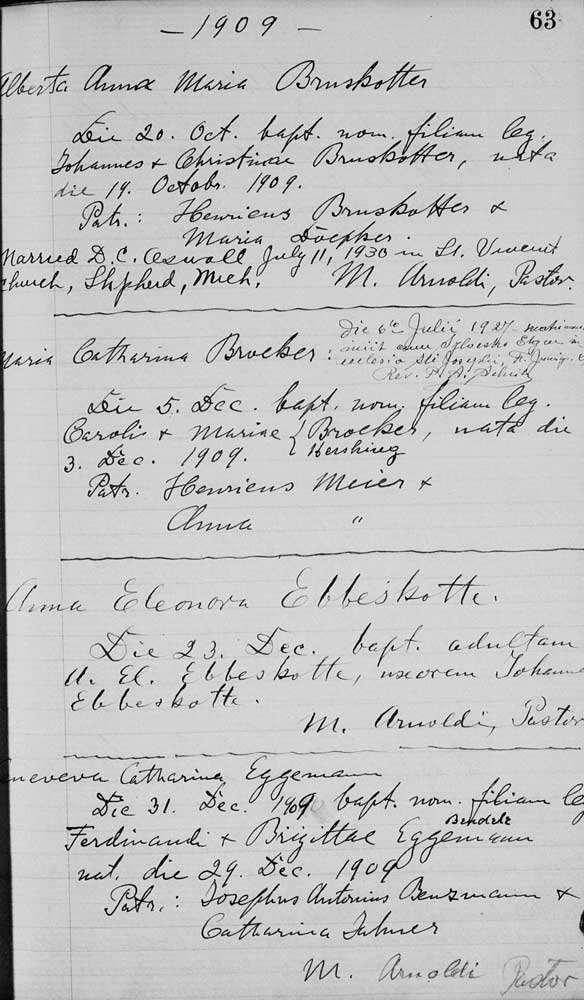 63
- 1909 -
Alberta Anna Maria Bruskotter
Die 20. Oct. bapt. nom. filiam leg.
Johannes & Christinae Bruskotter, nata
die 19. Octobr. 1909.
Patr.: Henricus Bruskotter &
Maria Doepker.
Married D. C. Oswalt July 11, 1930 in St. Vincent
Church, Shepherd, Mich. M. Arnoldi, Pastor.
Maria Catharina Broeker:
Die 6ta Julii 1927
cum
ecclesia Sti Josephi, Ft. Jennings O
Rev.
Die 5. Dec. bapt. nom. filiam leg.
Caroli & Mariae { Broeker, nata die
3. Dec. 1909. { Kershing
Patr. Henricus Meier &
Anna "
Anna Eleonora Ebbeskotte.
Die 23. Dec. bapt. adultam
A. El. Ebbeskotte, uxorem Johann
Ebbeskotte.
M. Arnoldi, Pastor
eneveva Catharina Eggemann
Die 31. Dec. 1909 bapt. nom. filiam leg
Bendele
Ferdinandi & Brigittae Eggemann
nat. die 29. Dec. 1909
Patr.: Josephus Antonius Benzmann &
Catharina
M. Arnoldi Pastor